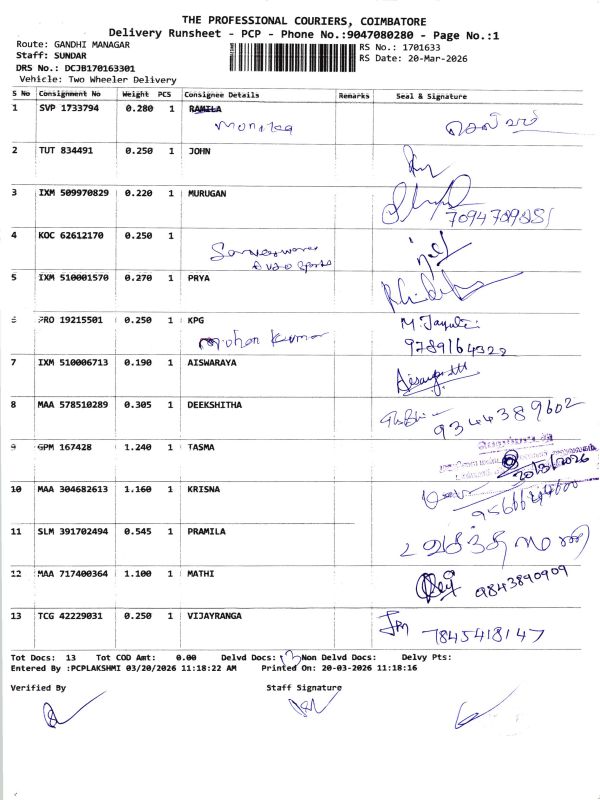 THE PROFESSIONAL COURIERS, COIMBATORE
Delivery Runsheet - PCP - Phone No.:9047080280 - Page No.:1
Route: GANDHI MANAGAR
Staff: SUNDAR
DRS No.: DCJB170163301
Vehicle: Two Wheeler Delivery
RS No.: 1701633
RS Date: 20-Mar-2026
S No Consignment No Weight PCS Consignee Details Remarks Seal & Signature
1 SVP 1733794 0.280 1 RAMILA
2 TUT 834491 0.250 1 JOHN
3 IXM 509970829 0.220 1 MURUGAN
4 KOC 62612170 0.250 1
5 IXM 510001570 0.270 1 PRYA
6 PRO 19215501 0.250 1 KPG
Mohan Kumar
M. Jayanthi
9789164322
7 IXM 510006713 0.190 1 AISWARAYA
8 MAA 578510289 0.305 1 DEEKSHITHA
9344389602
9 GPM 167428 1.240 1 TASMA
20/3/2026
10 MAA 304682613 1.160 1 KRISNA
11 SLM 391702494 0.545 1 PRAMILA
12 MAA 717400364 1.100 1 MATHI
9843890909
13 TCG 42229031 0.250 1 VIJAYRANGA
7845418147
Tot Docs: 13 Tot COD Amt: 0.00 Delvd Docs: 13 Non Delvd Docs: Delvy Pts:
Entered By :PCPLAKSHMI 03/20/2026 11:18:22 AM Printed On: 20-03-2026 11:18:16
Verified By Staff Signature